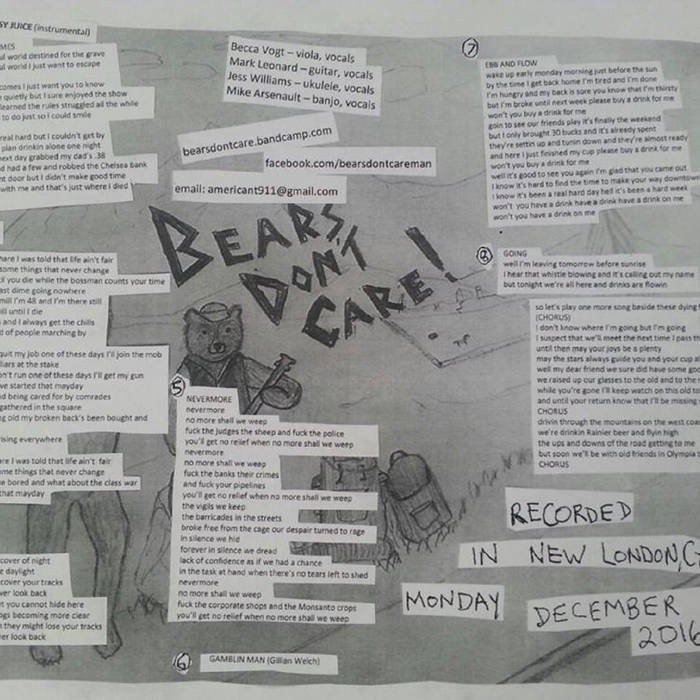 SY JUICE (instrumental)
MES
ul world destined for the grave
ul world I just want to escape
comes I just want you to know
quietly but I sure enjoyed the show
learned the rules struggled all the while
to do just so I could smile
real hard but I couldn't get by
plan drinkin alone one night
next day grabbed my dad's .38
had a few and robbed the Chelsea bank
door but I didn't make good time
with me and that's just where I died
hare I was told that life ain't fair
some things that never change
you die while the bossman counts your time
ast dime going nowhere
mill I'm 48 and I'm there still
ill until I die
and I always get the chills
d of people marching by
quit my job one of these days I'll join the mob
liars at the stake
n't run one of these days I'll get my gun
ve started that mayday
d being cared for by comrades
gathered in the square
g old my broken back's been bought and
rising everywhere
are I was told that life ain't fair
ome things that never change
e bored and what about the class war
that mayday
cover of night
e daylight
cover your tracks
ver look back
t you cannot hide here
ogs becoming more clear
they might lose your tracks
er look back
Becca Vogt – viola, vocals
Mark Leonard – guitar, vocals
Jess Williams – ukulele, vocals
Mike Arsenault – banjo, vocals
bearsdontcare.bandcamp.com
facebook.com/bearsdontcareman
email: americant911@gmail.com
BEARS
DON'T
CARE!
5
NEVERMORE
nevermore
no more shall we weep
fuck the judges the sheep and fuck the police
you'll get no relief when no more shall we weep
nevermore
no more shall we weep
fuck the banks their crimes
and fuck your pipelines
you'll get no relief when no more shall we weep
the vigils we keep
the barricades in the streets
broke free from the cage our despair turned to rage
in silence we hid
forever in silence we dread
lack of confidence as if we had a chance
in the task at hand when there's no tears left to shed
nevermore
no more shall we weep
fuck the corporate shops and the Monsanto crops
you'll get no relief when no more shall we weep
6
GAMBLIN MAN (Gillian Welch)
7
EBB AND FLOW
wake up early monday morning just before the sun
by the time I get back home I'm tired and I'm done
I'm hungry and my back is sore you know that I'm thirsty
but I'm broke until next week please buy a drink for me
won't you buy a drink for me
goin to see our friends play it's finally the weekend
but I only brought 30 bucks and it's already spent
they're settin up and tunin down and they're almost ready
and here I just finished my cup please buy a drink for me
won't you buy a drink for me
well it's good to see you again I'm glad that you came out
I know it's hard to find the time to make your way downtown
I know it's been a real hard day hell it's been a hard week
won't you have a drink have a drink have a drink on me
won't you have a drink on me
8
GOING
well I'm leaving tomorrow before sunrise
I hear that whistle blowing and it's calling out my name
but tonight we're all here and drinks are flowin
so let's play one more song beside these dying f
(CHORUS)
I don't know where I'm going but I'm going
I suspect that we'll meet the next time I pass th
until then may your joys be a plenty
may the stars always guide you and your cup al
well my dear friend we sure did have some goo
we raised up our glasses to the old and to the n
while you're gone I'll keep watch on this old to
and until your return know that I'll be missing
CHORUS
drivin through the mountains on the west coas
we're drinkin Rainier beer and flyin high
the ups and downs of the road getting to me
but soon we'll be with old friends in Olympia t
CHORUS
RECORDED
IN NEW LONDON, C
MONDAY DECEMBER
2016